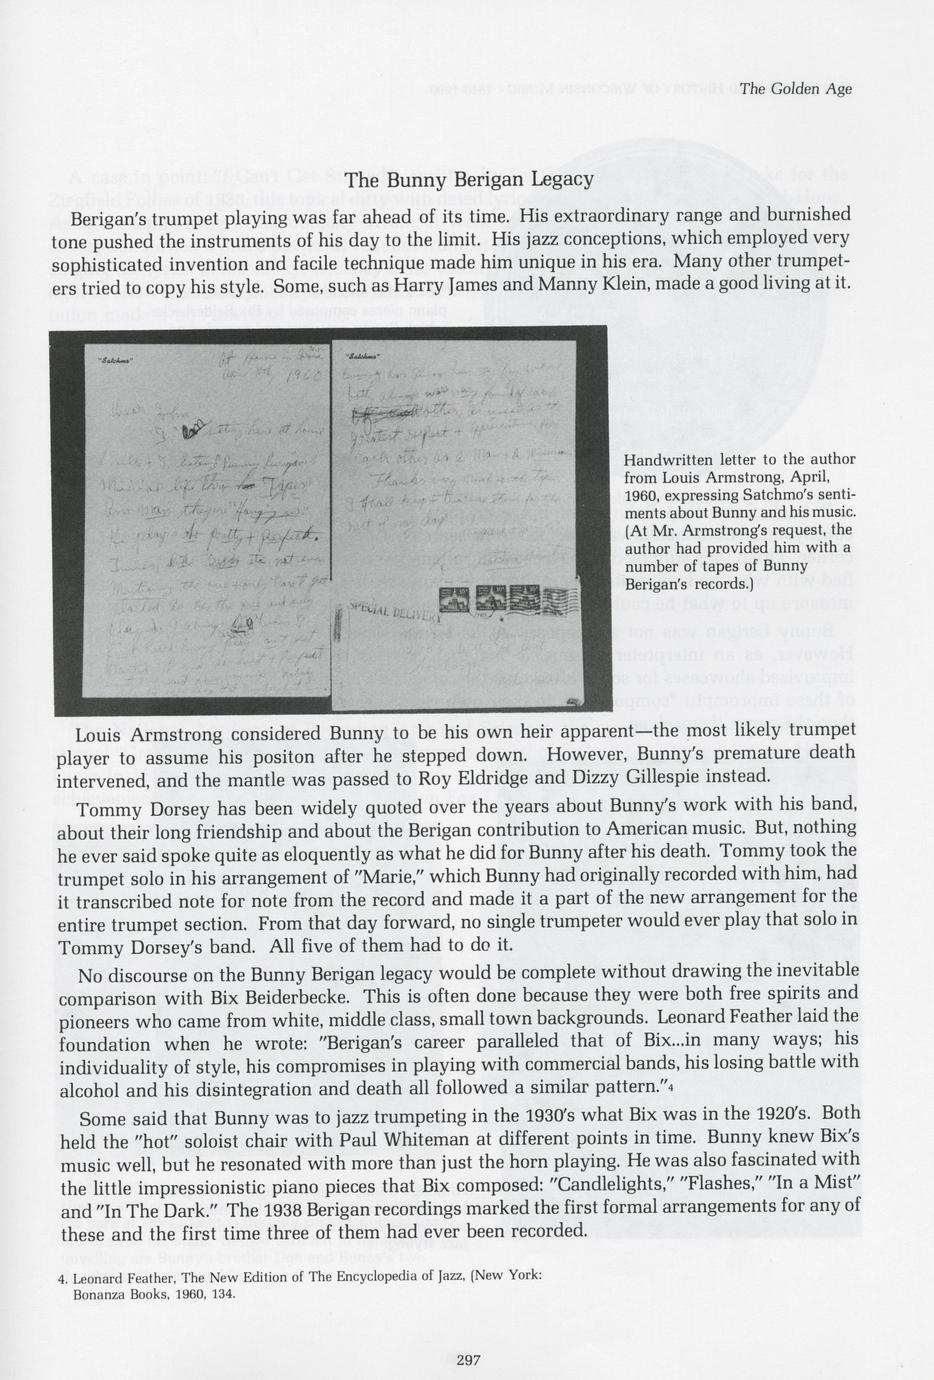 The Golden Age
The Bunny Berigan Legacy
Berigan's trumpet playing was far ahead of its time. His extraordinary range and burnished
tone pushed the instruments of his day to the limit. His jazz conceptions, which employed very
sophisticated invention and facile technique made him unique in his era. Many other trumpet-
ers tried to copy his style. Some, such as Harry James and Manny Klein, made a good living at it.
"Satchmo"
1960
"Satchmo"
SPECIAL DELIVERY
Handwritten letter to the author
from Louis Armstrong, April,
1960, expressing Satchmo's senti-
ments about Bunny and his music.
(At Mr. Armstrong's request, the
author had provided him with a
number of tapes of Bunny
Berigan's records.)
Louis Armstrong considered Bunny to be his own heir apparent—the most likely trumpet
player to assume his positon after he stepped down. However, Bunny's premature death
intervened, and the mantle was passed to Roy Eldridge and Dizzy Gillespie instead.
Tommy Dorsey has been widely quoted over the years about Bunny's work with his band,
about their long friendship and about the Berigan contribution to American music. But, nothing
he ever said spoke quite as eloquently as what he did for Bunny after his death. Tommy took the
trumpet solo in his arrangement of "Marie," which Bunny had originally recorded with him, had
it transcribed note for note from the record and made it a part of the new arrangement for the
entire trumpet section. From that day forward, no single trumpeter would ever play that solo in
Tommy Dorsey's band. All five of them had to do it.
No discourse on the Bunny Berigan legacy would be complete without drawing the inevitable
comparison with Bix Beiderbecke. This is often done because they were both free spirits and
pioneers who came from white, middle class, small town backgrounds. Leonard Feather laid the
foundation when he wrote: "Berigan's career paralleled that of Bix...in many ways; his
individuality of style, his compromises in playing with commercial bands, his losing battle with
alcohol and his disintegration and death all followed a similar pattern."4
Some said that Bunny was to jazz trumpeting in the 1930's what Bix was in the 1920's. Both
held the "hot" soloist chair with Paul Whiteman at different points in time. Bunny knew Bix's
music well, but he resonated with more than just the horn playing. He was also fascinated with
the little impressionistic piano pieces that Bix composed: "Candlelights," "Flashes," "In a Mist"
and "In The Dark." The 1938 Berigan recordings marked the first formal arrangements for any of
these and the first time three of them had ever been recorded.
4. Leonard Feather, The New Edition of The Encyclopedia of Jazz, (New York:
Bonanza Books, 1960, 134.
297